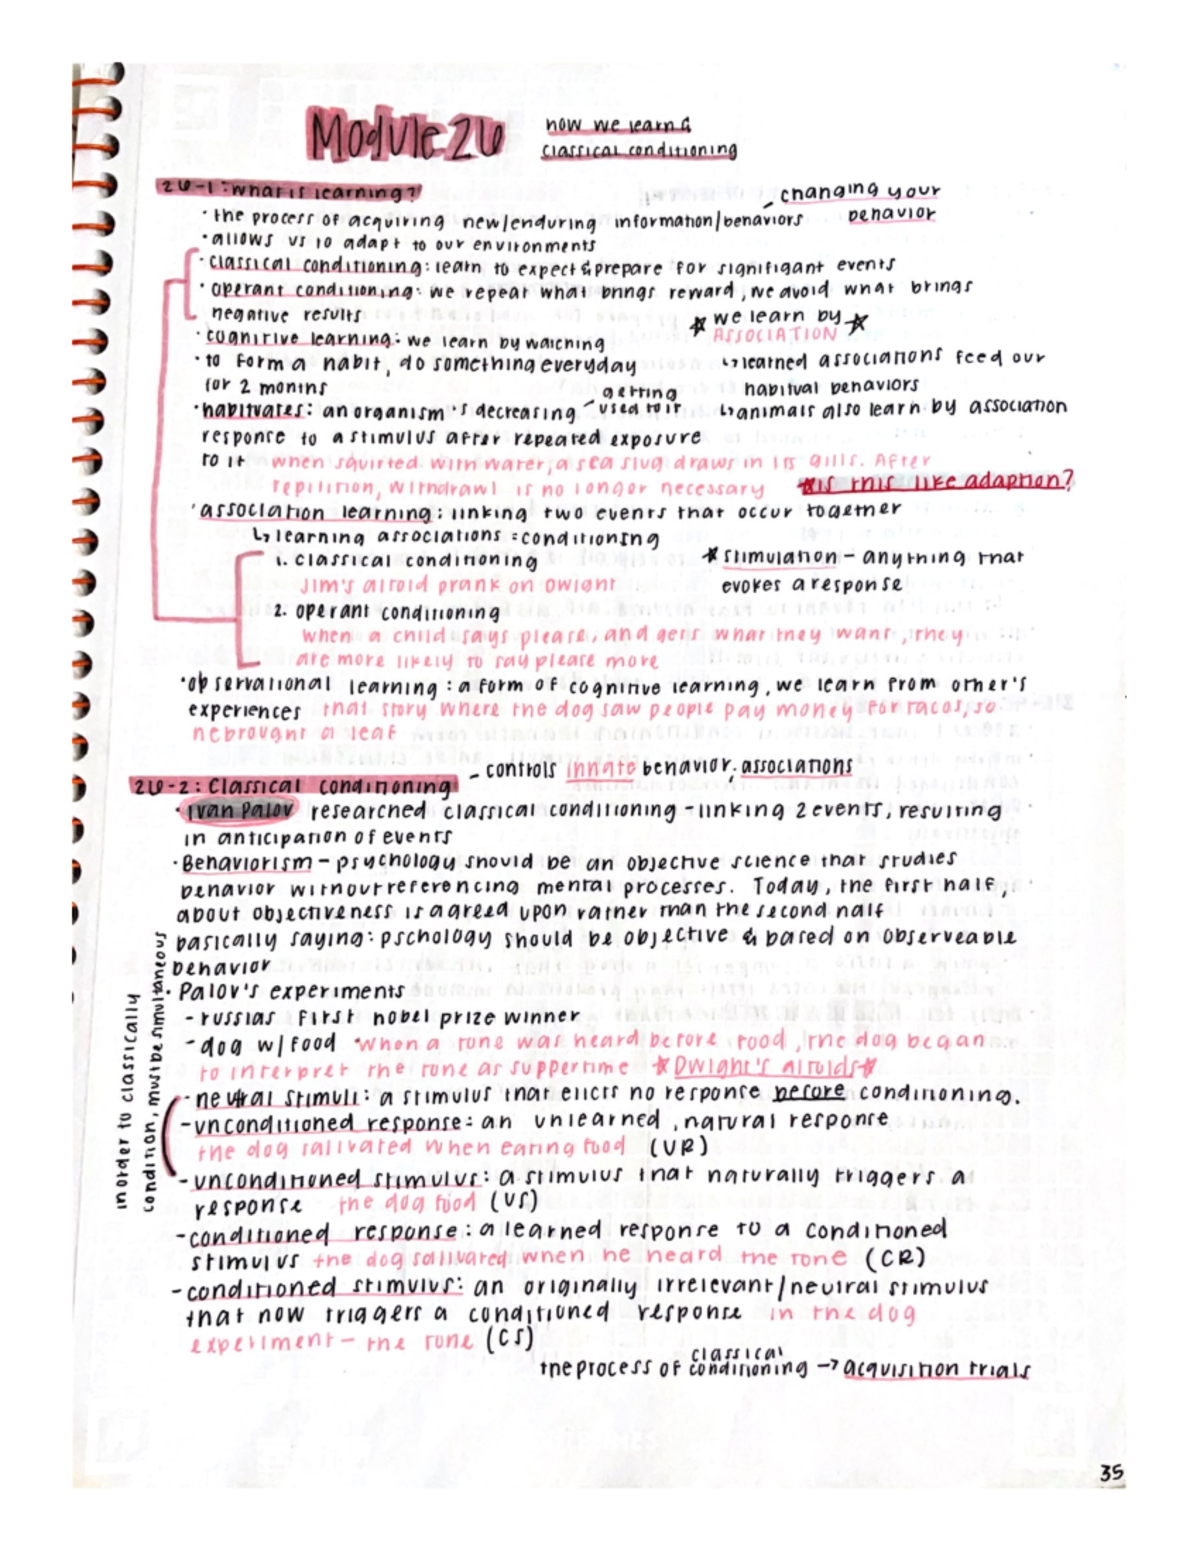 Module 26
how we learn &
classical conditioning
26-1: what is learning?
changing your
behavior
· the process of acquiring new/enduring information/behaviors
· allows us to adapt to our environments
· classical conditioning: learn to expect & prepare for signifigant events
· operant conditioning: we repeat what brings reward, we avoid what brings
negative results
· cognitive learning: we learn by watching
· to form a habit, do something everyday
for 2 months
★ we learn by ★
ASSOCIATION
↳ learned associations feed our
habitual behaviors
↳ animals also learn by association
· habituates: an organism's decreasing - getting used to it
response to a stimulus after repeated exposure
to it when squirted with water, a sea slug draws in its gills. After
repitition, withdrawl is no longer necessary
★ is this like adaption?
· association learning: linking two events that occur together
↳ learning associations = conditioning
1. classical conditioning
Jim's altoid prank on Dwight
2. operant conditioning
when a child says please, and gets what they want, they
are more likely to say please more
★ stimulation - anything that
evokes a response
· observational learning: a form of cognitive learning, we learn from other's
experiences that story where the dog saw people pay money for tacos, so
he brought a leaf
26-2: Classical conditioning - controls innate behavior; associations
· Ivan Palov researched classical conditioning - linking 2 events, resulting
in anticipation of events
· Behaviorism - psychology should be an objective science that studies
behavior without referencing mental processes. Today, the first half,
about objectiveness is agreed upon rather than the second half
basically saying: pschology should be objective & based on observeable
behavior
· Palov's experiments
- russias first nobel prize winner
- dog w/ food · when a tone was heard before food, the dog began
to interpret the tone as suppertime ★ Dwight's altoids ★
in order to classically
condition, must be simultaneous
- neutral stimuli: a stimulus that elicts no response before conditioning.
- unconditioned response: an unlearned, natural response
the dog salivated when eating food (UR)
- unconditioned stimulus: a stimulus that naturally triggers a
response the dog food (US)
- conditioned response: a learned response to a conditioned
stimulus the dog salivated when he heard the tone (CR)
- conditioned stimulus: an originally irrelevant/neutral stimulus
that now triggers a conditioned response in the dog
experiment - the tone (CS)
the process of classical conditioning → acquisition trials
35